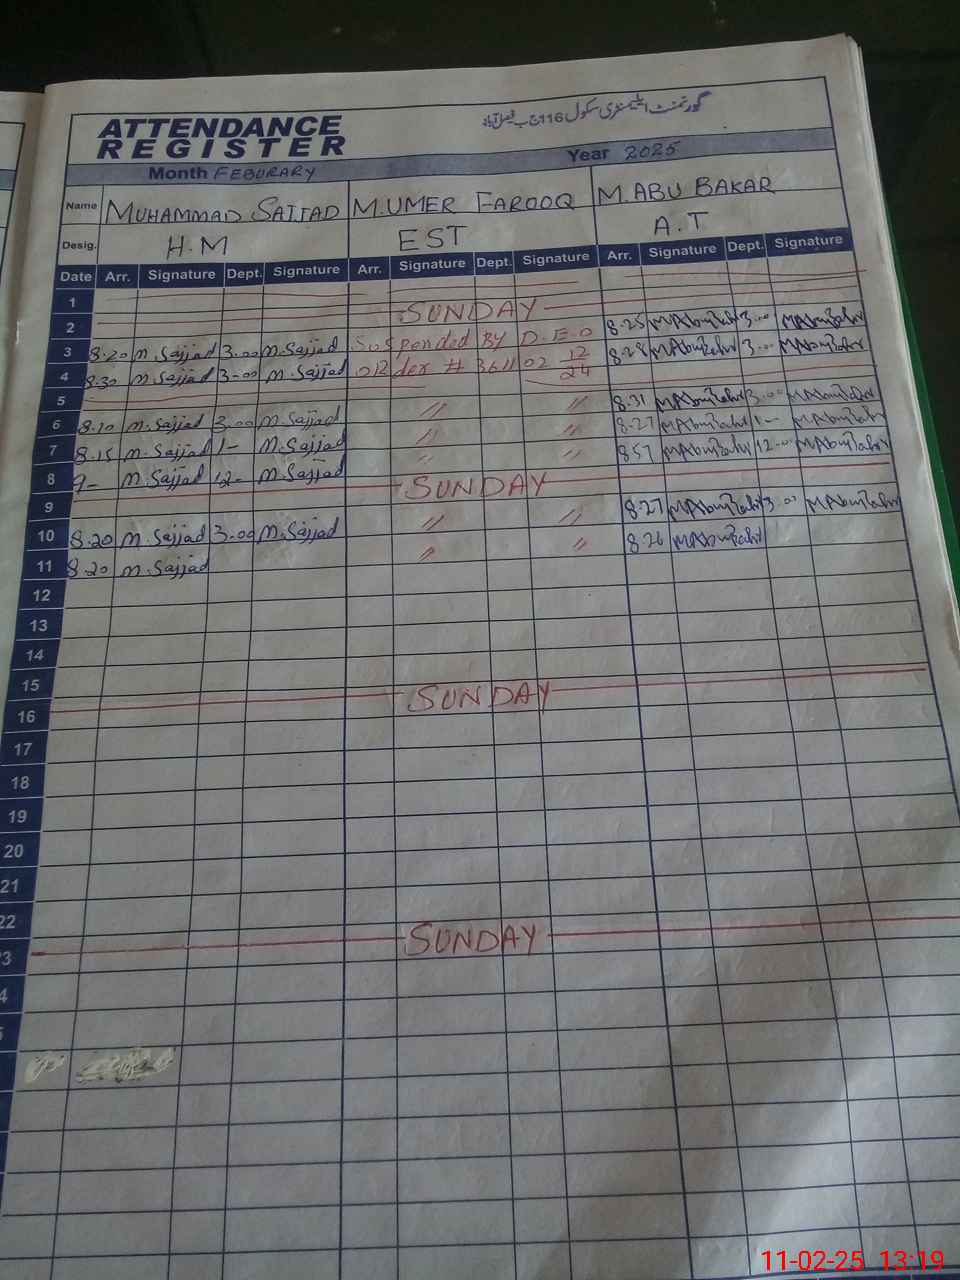 گورنمنٹ ایلیمنٹری سکول 116 ج ب فیصل آباد
ATTENDANCE
REGISTER
Month FEBURARY Year 2025
Name MUHAMMAD SAJJAD M.UMER FAROOQ M.ABU BAKAR
Desig. H.M EST A.T
Date Arr. Signature Dept. Signature Arr. Signature Dept. Signature Arr. Signature Dept. Signature
1
2 SUNDAY
3 8.20 M.Sajjad 3.00 M.Sajjad Suspended By D.E.O 8.25 MAbuBakr 3.00 MAbuBakr
4 8.30 M.Sajjad 3.00 M.Sajjad OR der # 3611 02 12/24 8.28 MAbuBakr 3.00 MAbuBakr
5
6 8.10 M.Sajjad 3.00 M.Sajjad // // 8.31 MAbuBakr 3.00 MAbuBakr
7 8.15 M.Sajjad 1- M.Sajjad // // 8.27 MAbuBakr 1- MAbuBakr
8 9- M.Sajjad 12- M.Sajjad // // 8.57 MAbuBakr 12.00 MAbuBakr
9 SUNDAY
10 8.20 M.Sajjad 3.00 M.Sajjad // // 8.27 MAbuBakr 3.00 MAbuBakr
11 8.20 M.Sajjad // // 8.26 MAbuBakr
12
13
14
15
16 SUNDAY
17
18
19
20
21
22
3 SUNDAY
4
11-02-25 13:19